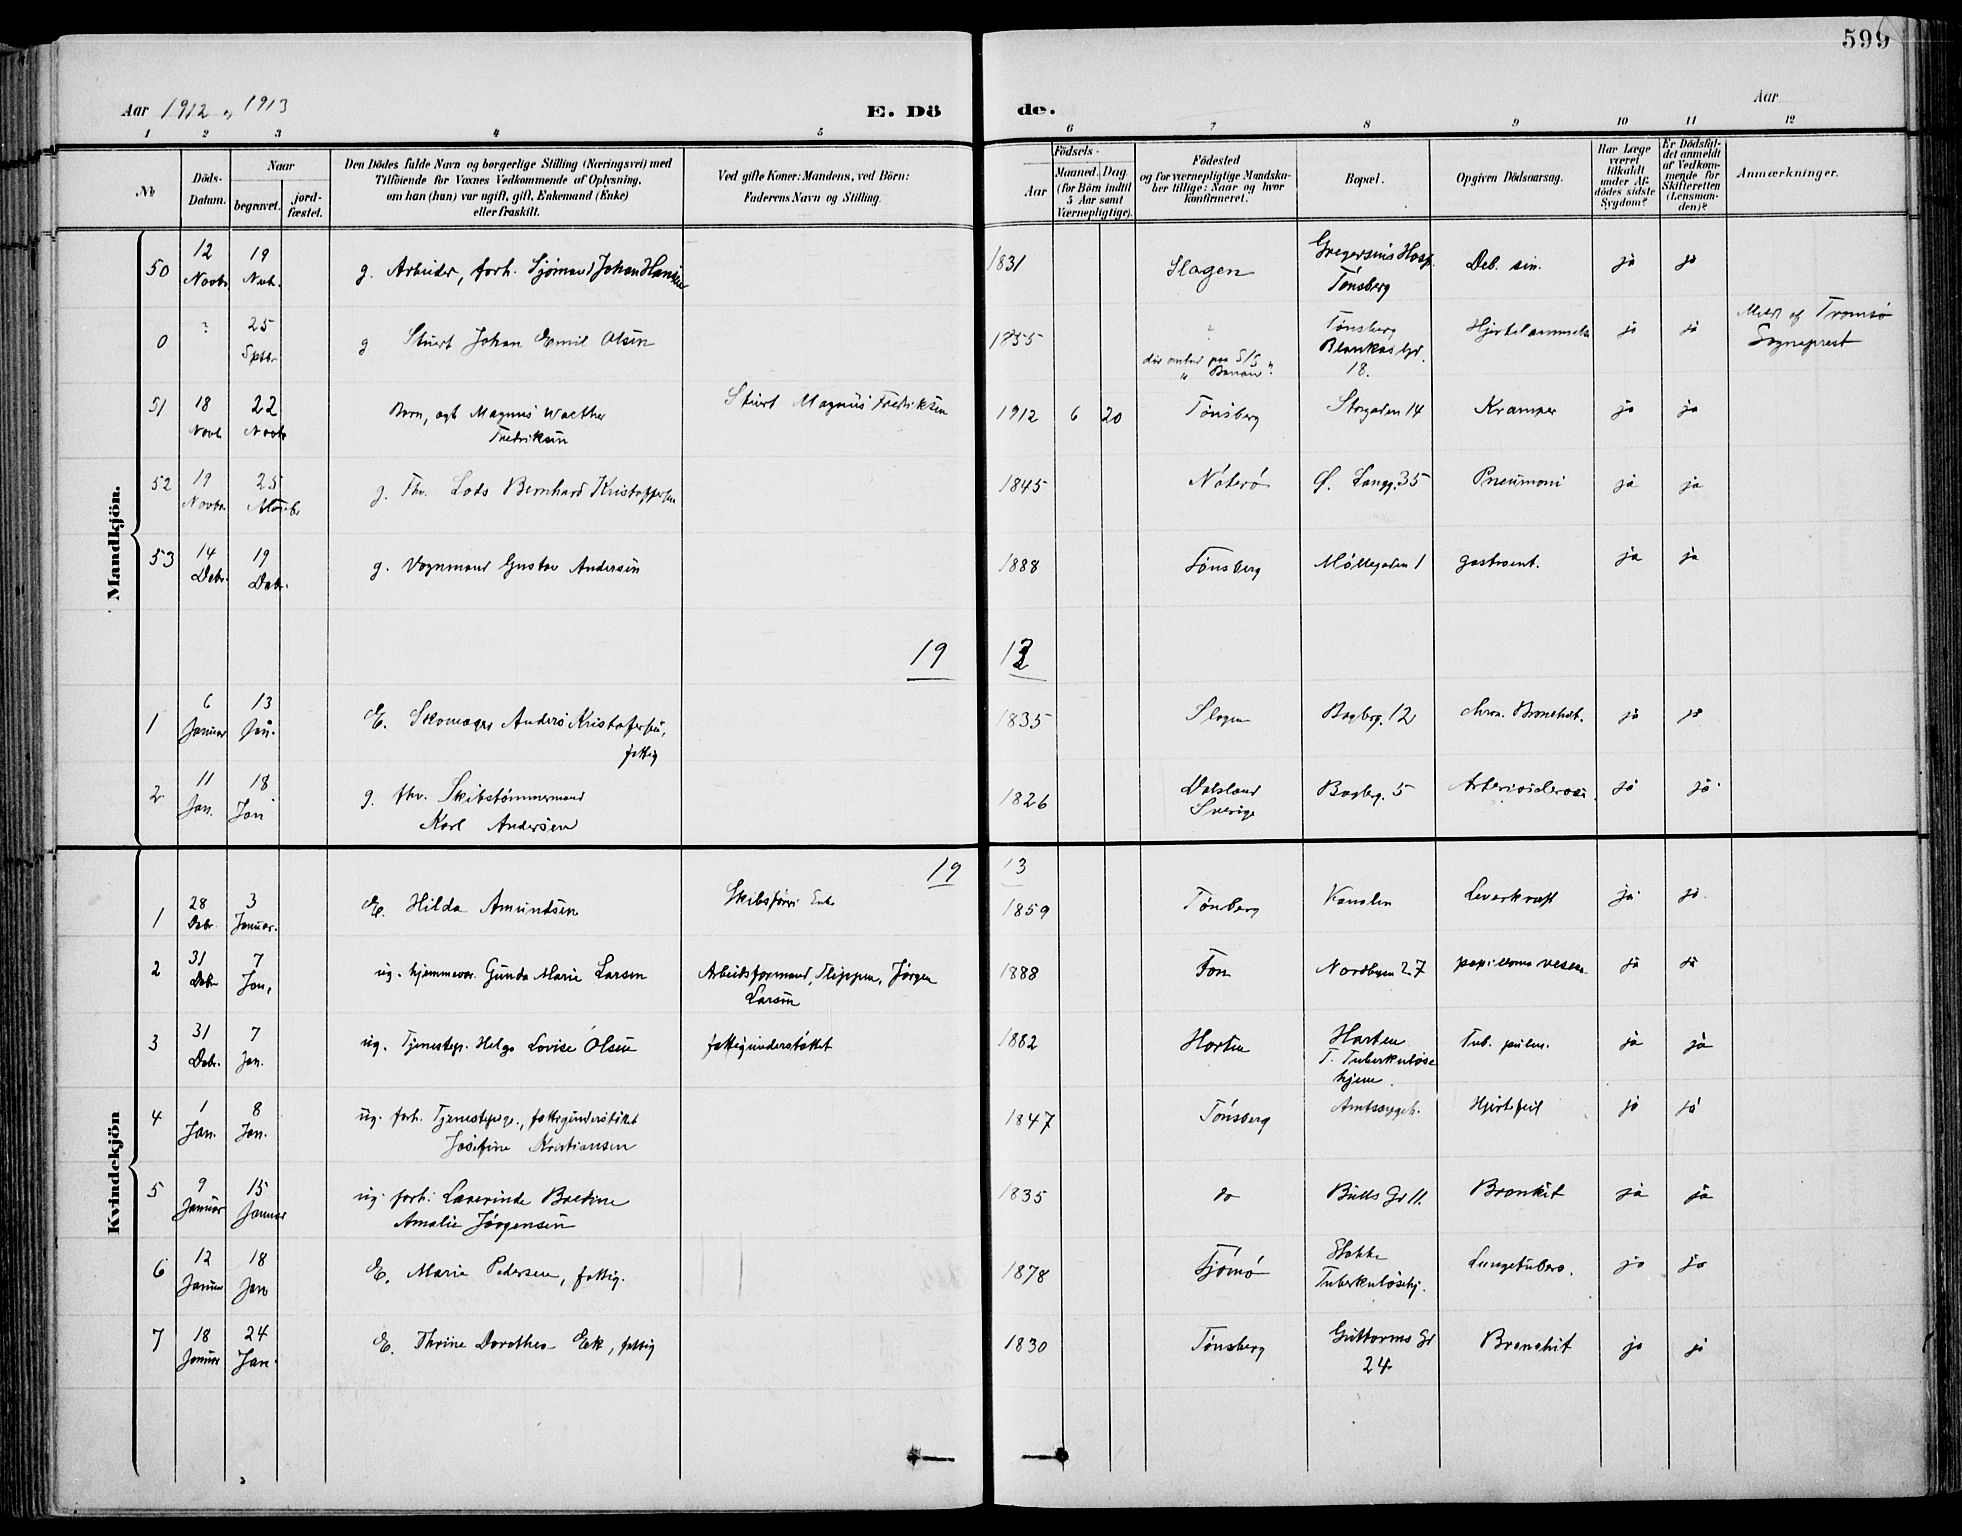 599
Aar 1912 o, 1913 E. Dö de. Aar
1 2 3 4 5 6 7 8 9 10 11 12
№
Döds-Datum.
Naar
begravet.
jord-fæstet.
Den Dödes fulde Navn og borgerlige Stilling (Næringsvei) med
Tilföiende for Voxnes Vedkommende af Oplysning,
om han (hun) var ugift, gift, Enkemand (Enke)
eller fraskilt.
Ved gifte Koner: Mandens, ved Börn:
Faderens Navn og Stilling.
Födsels-
Aar
Maaned. Dag.
(for Börn indtil
5 Aar samt
Værnepligtige).
Födested
og for værnepligtige Mandska-
ber tillige: Naar og hvor
konfirmeret.
Bopæl.
Opgiven Dödsaarsag.
Har Læge
været
tilkaldt
under Af-
dödes sidste
Sygdom?
Er Dödsfal-
det anmeldt
af Vedkom-
mende for
Skifteretten
(Lensman-
den)?
Anmærkninger.
Mandkjön.
50 12 Novbr 19 Nvb. g. Arbeider, forh. Sjömand Johan Hansen 1831 Slagen Gregersens Hosp. Tönsberg Deb. sin. ja ja
0 ? 25 Sptr. g Stuert Johan Emil Olsen 1855 ? Tönsberg Blankas Gd. 18. ja ja Tromsö Sogneprest
51 18 Novb 22 Novb Barn, ægt Magnus Walther Fredriksen Stuert Magnus Fredriksen 1912 6 20 Tönsberg Storgaden 14 Kramper ja ja
52 19 Novbr 25 g. Fhv. Lods Bernhard Kristoffersen 1845 Nöterö Ø. Langg. 35 Pneumoni ja ja
53 14 Debr. 19 Debr. g. Vognmand Gustav Andersen 1888 Tönsberg Möllegaden 1 gastroent. ja ja
19 13
1 6 Januar 13 Jan. E. Skomager Anders Kristoffersen, fattig 1835 Slagen Bagberg. 12 chron. Bronchit. ja ja
2 11 Jan. 18 Jan g. fhv. Skibstömmermand Karl Andersen 1826 Dalsland Sverige Bagberg. 5 ja ja
Kvindekjön
19 13
1 28 Debr. 3 Januar. E. Hilda Amundsen Skibsförer Enke 1859 Tönsberg Kanalen Leverkræft ja ja
2 31 Debr 7 Jan, ug. hjemmevær. Gunda Marie Larsen Arbeidsformand, Jörgen Larsen 1888 Fon Nordbyen 27 papilloma vesicæ ja ja
3 31 Debr. 7 Jan. ug. Tjenestep. Helga Lovise Olsen fattigunderstöttet 1882 Horten Horten T. Tuberkulose hjem. Tub. pulm. ja ja
4 1 Jan. 8 Jan. ug. forh. Tjenestepige, fattigunderstöttet Josefine Kristiansen 1847 Tönsberg Amtssygeh. Hjertefeil ja ja
5 9 Januar 15 Januar ug. forh. Lærerinde Bredine Amalie Jörgensen 1835 do Bulls Gd 11. Bronkit ja ja
6 12 Januar 18 Jan E. Marie Pedersen, fattig. 1878 Tjömö Stokke Tuberkulösehj. Lungetuberc. ja ja
7 18 Januar 24 Jan. E. Thrine Dorothea Eek, fattig 1830 Tönsberg Guttorms Gd 24. Bronchit ja ja